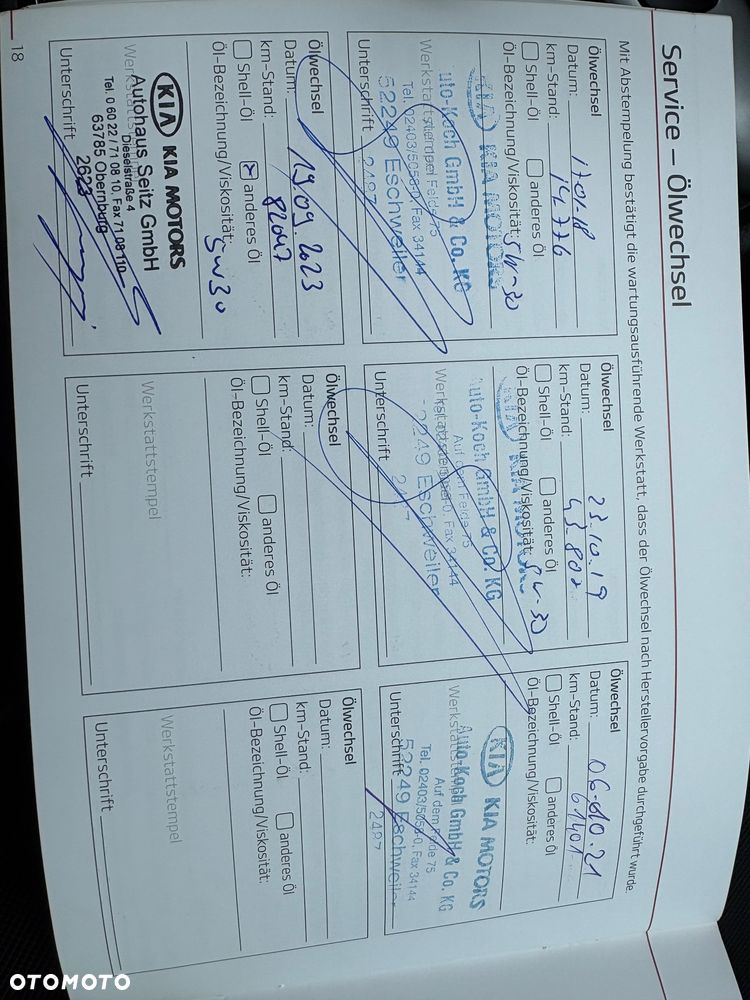 Service – Ölwechsel
Mit Abstempelung bestätigt die wartungsausführende Werkstatt, dass der Ölwechsel nach Herstellervorgabe durchgeführt wurde.
Ölwechsel
Datum:
km-Stand: 14.776
Shell-Öl anderes Öl
Öl-Bezeichnung/Viskosität: 5W-30
KIA KIA MOTORS
Auto-Koch GmbH & Co. KG
Werkstattstempel Auf dem Felde 75
Tel. 02403/5058-0, Fax 34144
52249 Eschweiler
Unterschrift 2487
Ölwechsel
Datum: 23.10.19
km-Stand: 43.802
Shell-Öl anderes Öl
Öl-Bezeichnung/Viskosität: 5W-30
KIA KIA MOTORS
Auto-Koch GmbH & Co. KG
Werkstattstempel Auf dem Felde 75
Tel. 02403/5058-0, Fax 34144
52249 Eschweiler
Unterschrift 2487
Ölwechsel
Datum: 06.10.21
km-Stand: 61401
Shell-Öl anderes Öl
Öl-Bezeichnung/Viskosität:
KIA KIA MOTORS
Auto-Koch GmbH & Co. KG
Werkstattstempel Auf dem Felde 75
Tel. 02403/5058-0, Fax 34144
52249 Eschweiler
Unterschrift 2487
Ölwechsel
Datum: 19.09.2023
km-Stand: 82047
Shell-Öl x anderes Öl
Öl-Bezeichnung/Viskosität: 5W30
KIA KIA MOTORS
Autohaus Seitz GmbH
Werkstattstempel Dieselstraße 4
Tel. 0 60 22 / 71 08 10, Fax 71 08 110
63785 Obernburg
Unterschrift 2623
Ölwechsel
Datum:
km-Stand:
Shell-Öl anderes Öl
Öl-Bezeichnung/Viskosität:
Werkstattstempel
Unterschrift
Ölwechsel
Datum:
km-Stand:
Shell-Öl anderes Öl
Öl-Bezeichnung/Viskosität:
Werkstattstempel
Unterschrift
18
OTOMOTO